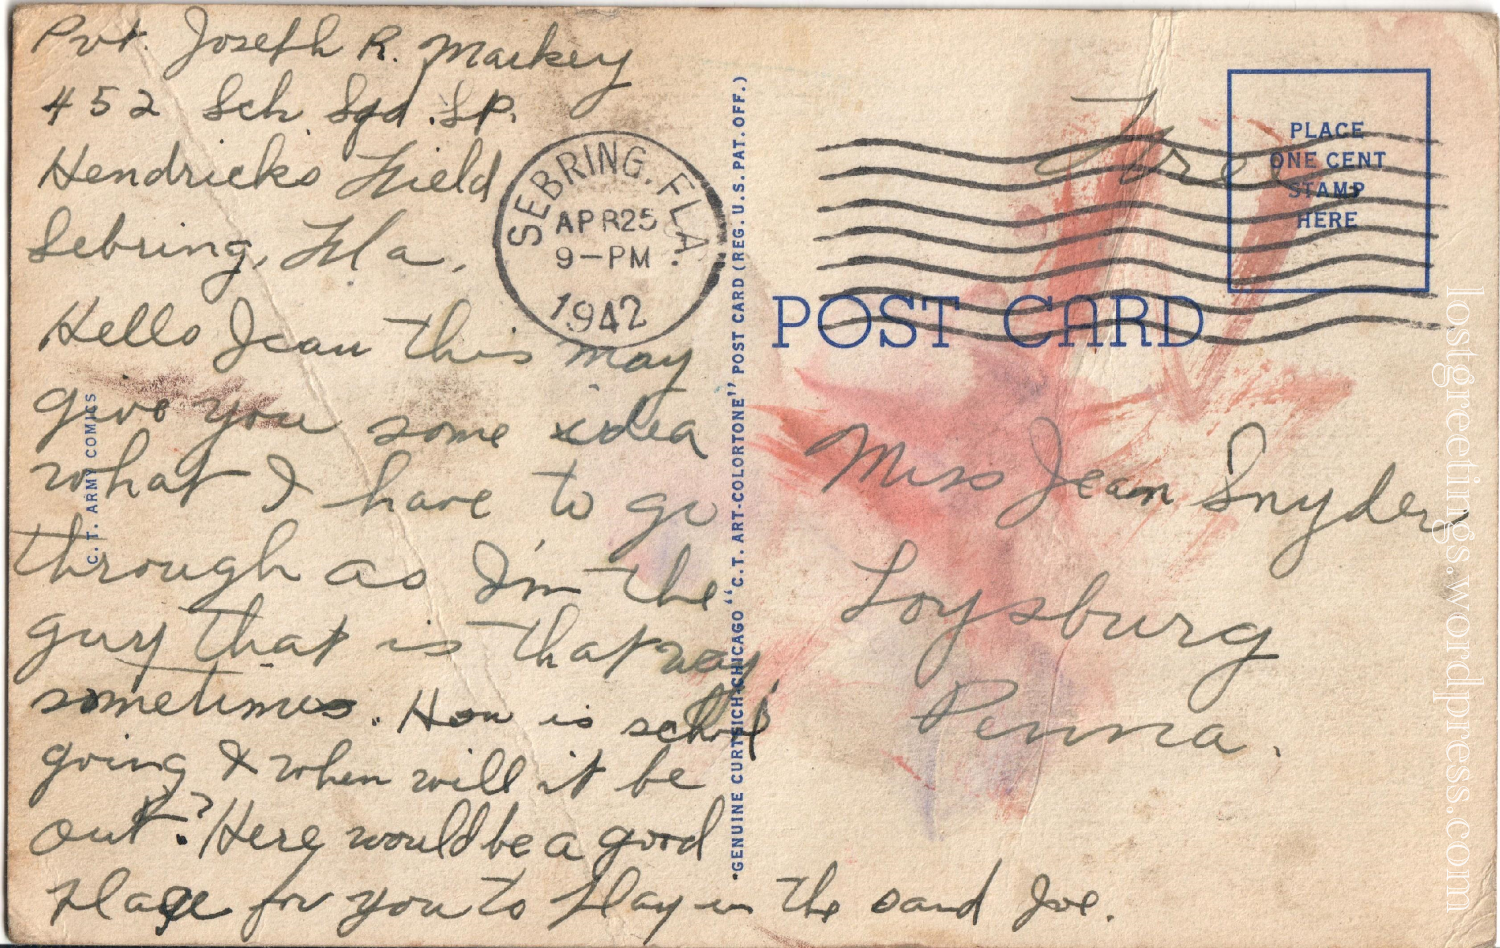 Pvt. Joseph R. Markey
452 Sch Sqd. Sp.
Hendricks Field
Sebring, Fla.
Hello Jean this may
give you some idea
what I have to go
through as I'm the
guy that is that way
sometimes. How is school
going & when will it be
out? Here would be a good
place for you to play in the sand Joe.
C. T. ARMY COMICS
SEBRING, FLA.
APR 25
9-PM
1942
GENUINE CURTEICH-CHICAGO "C.T. ART-COLORTONE" POST CARD (REG. U.S. PAT. OFF.)
Free
PLACE
ONE CENT
STAMP
HERE
POST CARD
Miss Jean Snyder
Loysburg
Penna.
lostgreetings.wordpress.com